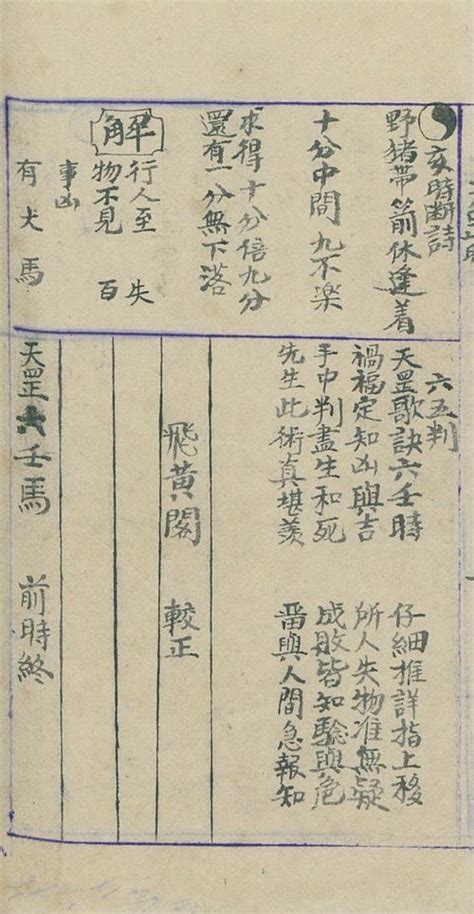 亥時断詩
野猪帶箭休逢着
十分中間九不楽
求得十分倍九分
還有一分無下落
解
行人至　失
物不見　百
事凶
有犬馬
六五判
天罡歌訣六壬時　仔細推詳指上移
禍福定知凶與吉　所人失物准無疑
手中判盡生和死　成敗皆知驗與危
先生此術真堪羨　畨與人間急報知
飛黄閣　較正
天罡六壬馬　前時終